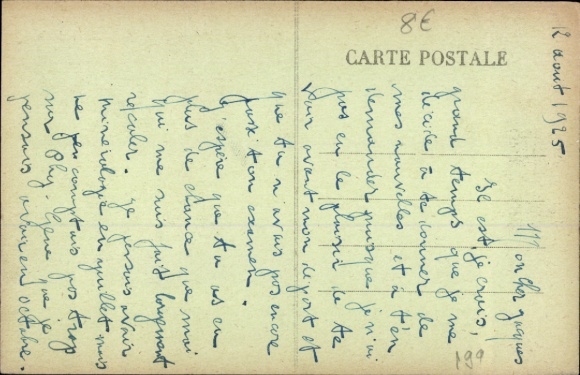 8€
CARTE POSTALE
12 août 1925
Mon cher Jacques
Il est, je crois,
grand temps que je me
décide à te donner de
mes nouvelles et à t'en
demander puisque je n'ai
pas eu le plaisir de te
voir avant mon départ et
que tu n'avais pas encore
passé ton examen.
J'espère que tu as eu
plus de chance que moi
qui me suis fait longuement
recaler. Je pensais avoir
minéralogie en juillet mais
ne comptais pas trop
sur Phy. Gene que je
pensais avoir en octobre.
199